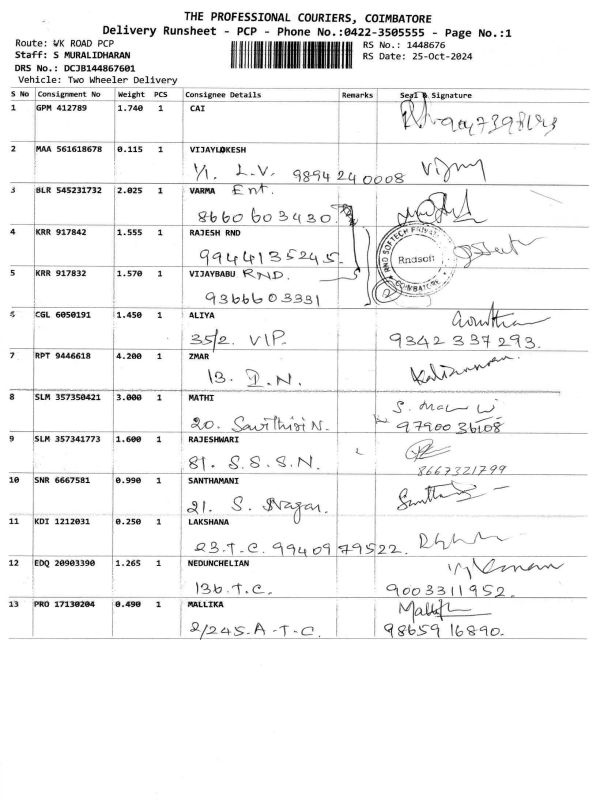 THE PROFESSIONAL COURIERS, COIMBATORE
Delivery Runsheet - PCP - Phone No.:0422-3505555 - Page No.:1
Route: VK ROAD PCP
RS No.: 1448676
Staff: S MURALIDHARAN
RS Date: 25-Oct-2024
DRS No.: DCJB144867601
Vehicle: Two Wheeler Delivery
S No Consignment No Weight PCS Consignee Details Remarks Seal & Signature
1 GPM 412789 1.740 1 CAI
2 MAA 561618678 0.115 1 VIJAYLOKESH
1/1. L.V. 9894240008
3 BLR 545231732 2.025 1 VARMA Ent.
8660603430
4 KRR 917842 1.555 1 RAJESH RND
9944135245.
RND SOFTECH PRIVATE
Rndsoft
COIMBATORE
5 KRR 917832 1.570 1 VIJAYBABU RND.
9366603331
6 CGL 6050191 1.450 1 ALIYA
35/2. VIP. 9342337293.
7 RPT 9446618 4.200 1 ZMAR
13. D.N.
8 SLM 357350421 3.000 1 MATHI
20. Savithiri N. 9790036108
9 SLM 357341773 1.600 1 RAJESHWARI
81. S.S.S.N. 8667321799
10 SNR 6667581 0.990 1 SANTHAMANI
21. S. Nagar.
11 KDI 1212031 0.250 1 LAKSHANA
23.T.C. 9940979522.
12 EDQ 20903390 1.265 1 NEDUNCHELIAN
136.T.C. 9003311952.
13 PRO 17130204 0.490 1 MALLIKA
2/245.A-T-C. 9865916890.